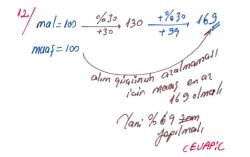 12/
mal = 100 %30 +30 130 +%30 +39 169
maaş = 100
alım gücünün azalmaması
için maaş en az
169 olmalı
Yani %69 zam
yapılmalı
CEVAP: C